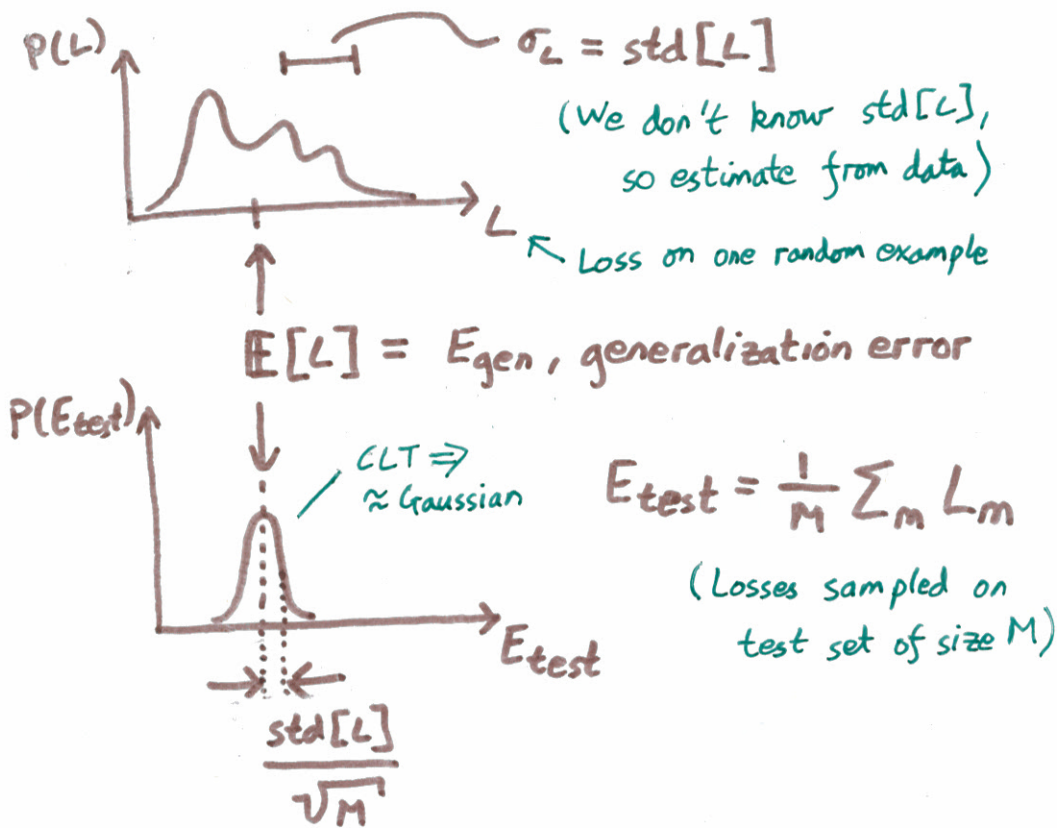 P(L)
σ_L = std[L]
(We don't know std[L],
so estimate from data)
L
Loss on one random example
𝔼[L] = E_gen, generalization error
P(E_test)
CLT ⇒
≈ Gaussian
E_test = 1/M Σ_m L_m
(Losses sampled on
test set of size M)
E_test
std[L]
√M